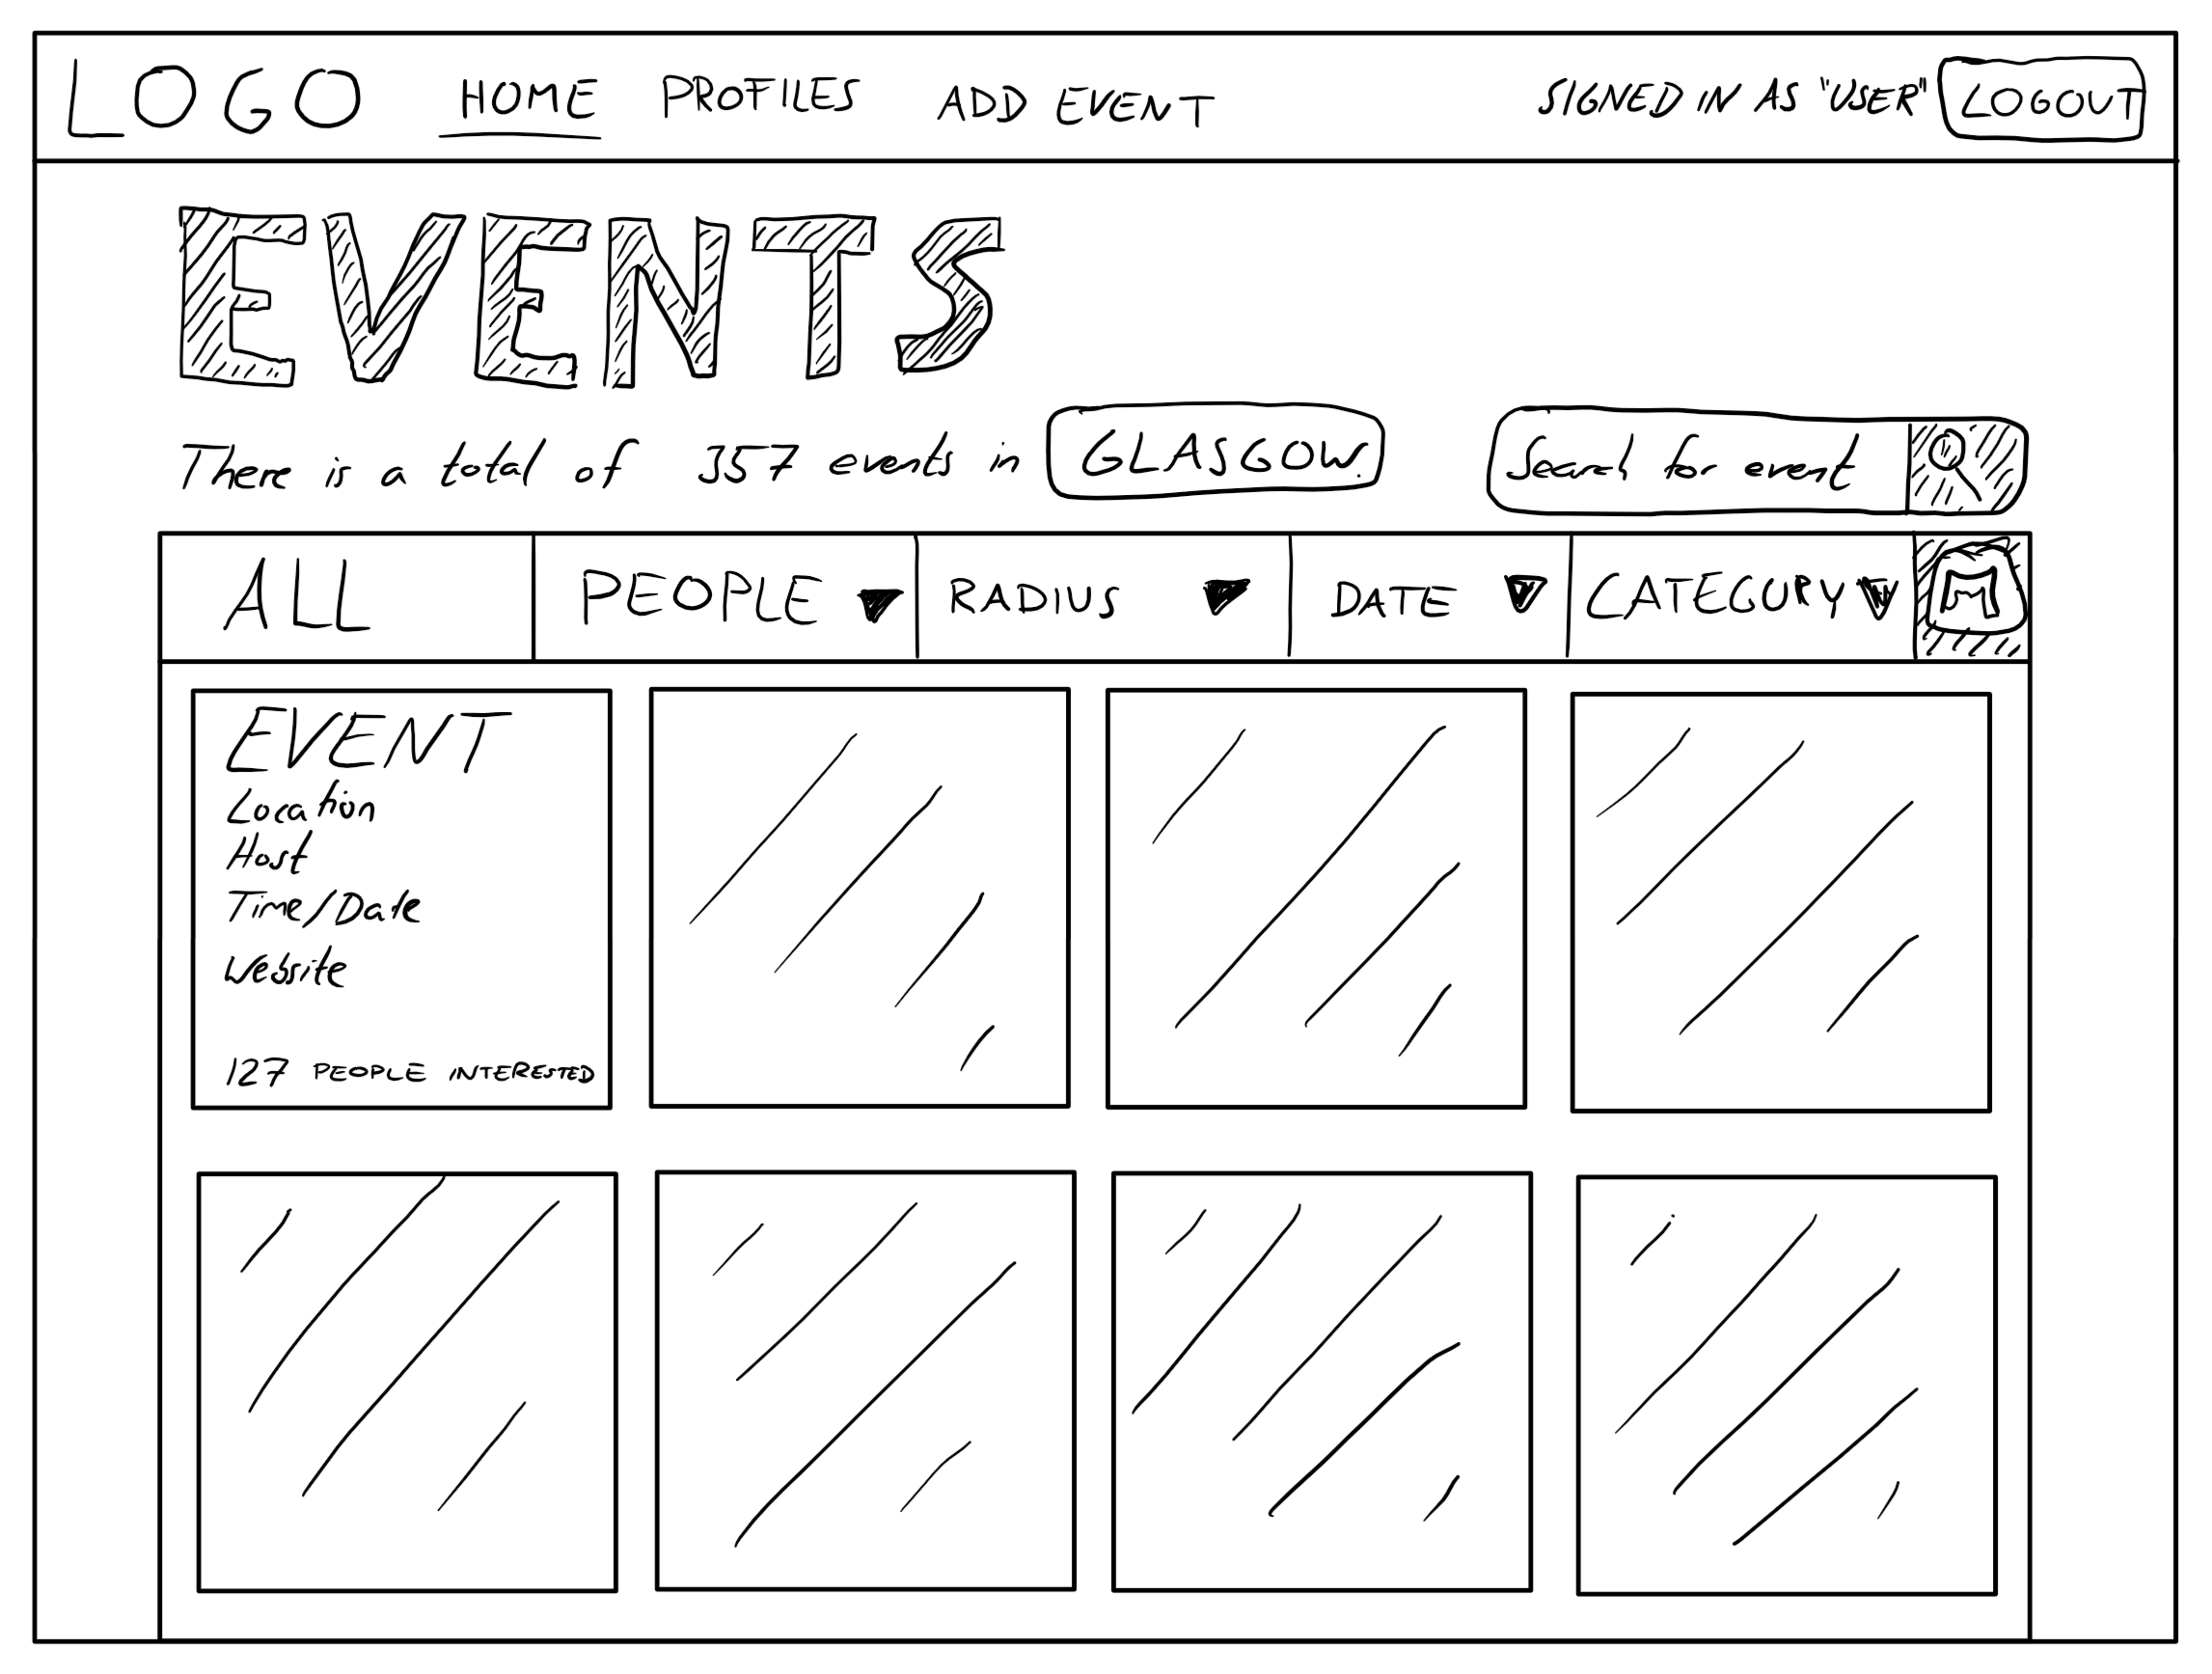 LOGO HOME PROFILES ADD EVENT SIGNED IN AS "USER" LOGOUT
EVENTS
There is a total of 357 events in GLASGOW. Search for event
ALL PEOPLE RADIUS DATE CATEGORY M
EVENT
Location
Host
Time/Date
Website
127 PEOPLE INTERESTED